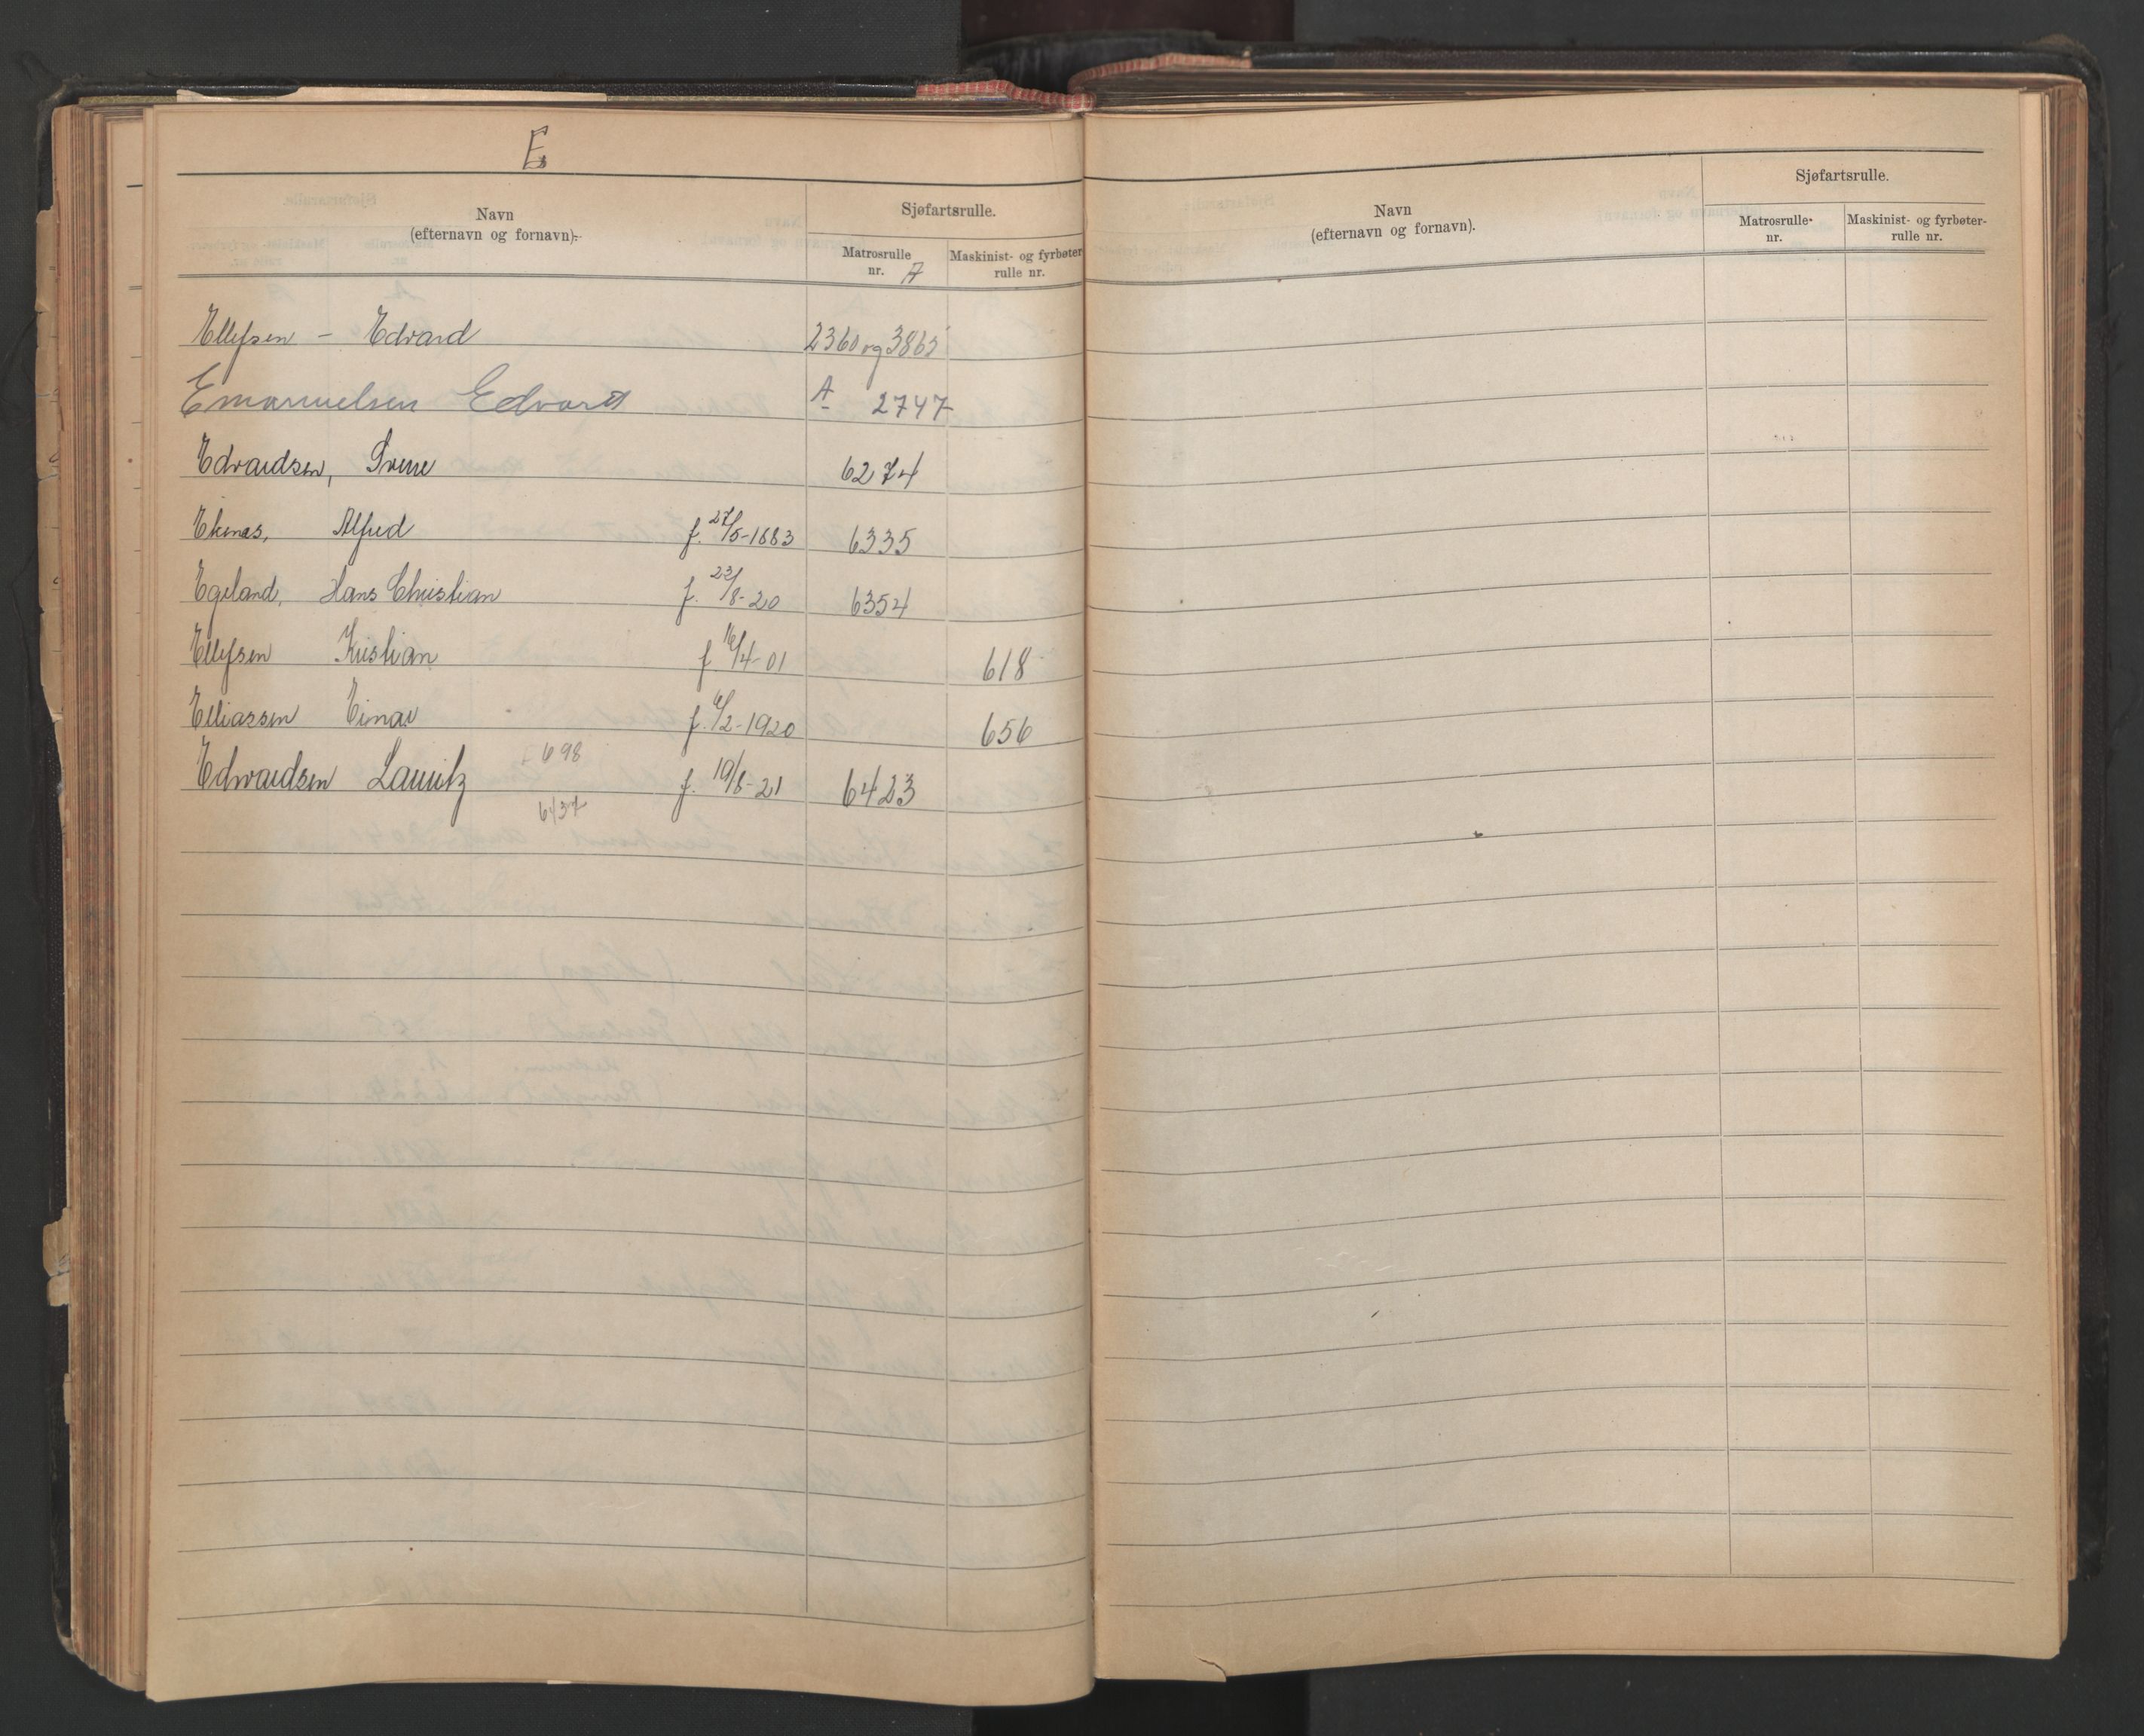 E.
Navn
(efternavn og fornavn).
Sjøfartsrulle.
Matrosrulle
nr. A
Maskinist- og fyrbøter
rulle nr.
Ellefsen - Edvard 2360 og 3865
Emanuelsen Edvard A 2747
Edvardsen, Sverre 6274
Ekenes, Alfred f. 27/5-1883 6335
Egeland, Hans Christian f. 23/8-20 6354
Ellefsen Kristian f. 16/4-01 618
Elliassen Einar f. 6/2-1920 656
698
Edwardsen Lauritz f. 19/8-21 6423
6437
Navn
(efternavn og fornavn).
Sjøfartsrulle.
Matrosrulle-
nr.
Maskinist- og fyrbøter-
rulle nr.